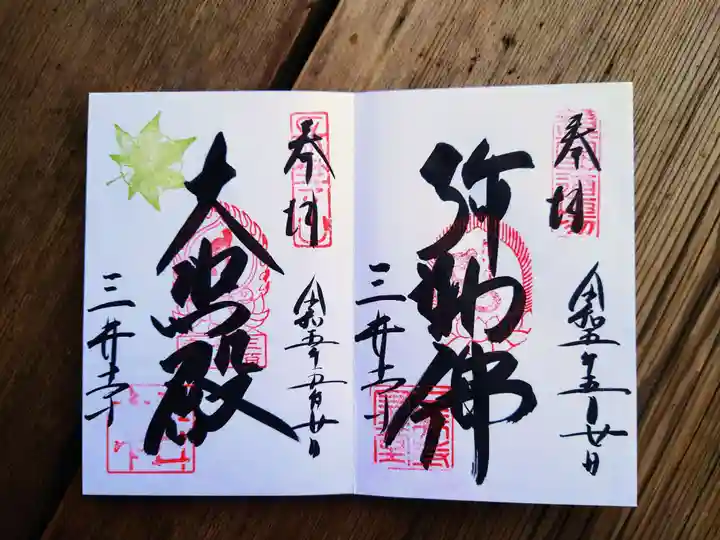 奉拝
令和五年五月廿日
弥勒佛
三井寺
奉拝
令和五年五月廿日
大黒殿
三井寺